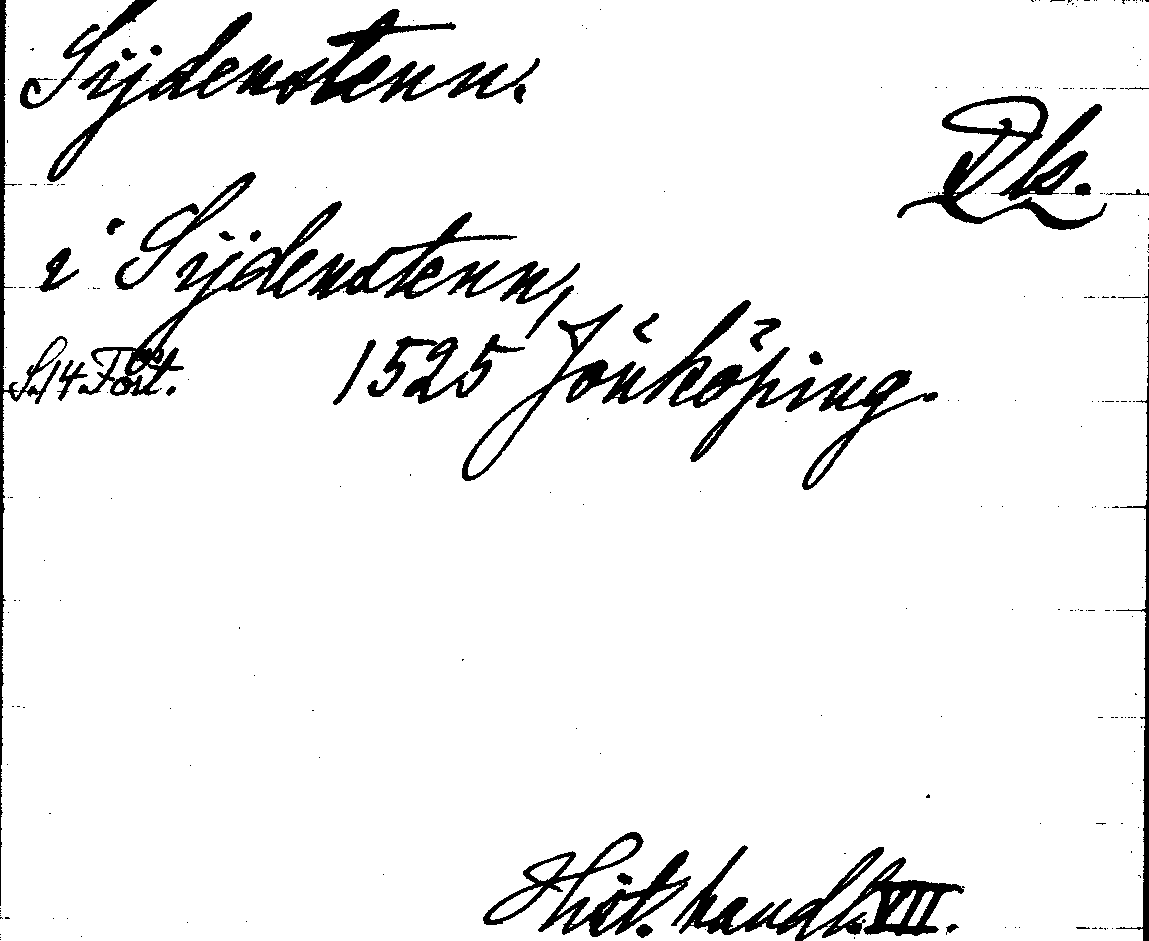 Sijdenstenn.
Dk.
i Sijdenstenn,
S. 14 Fört. 1525 Jönköping.
Hist. handl. VII.